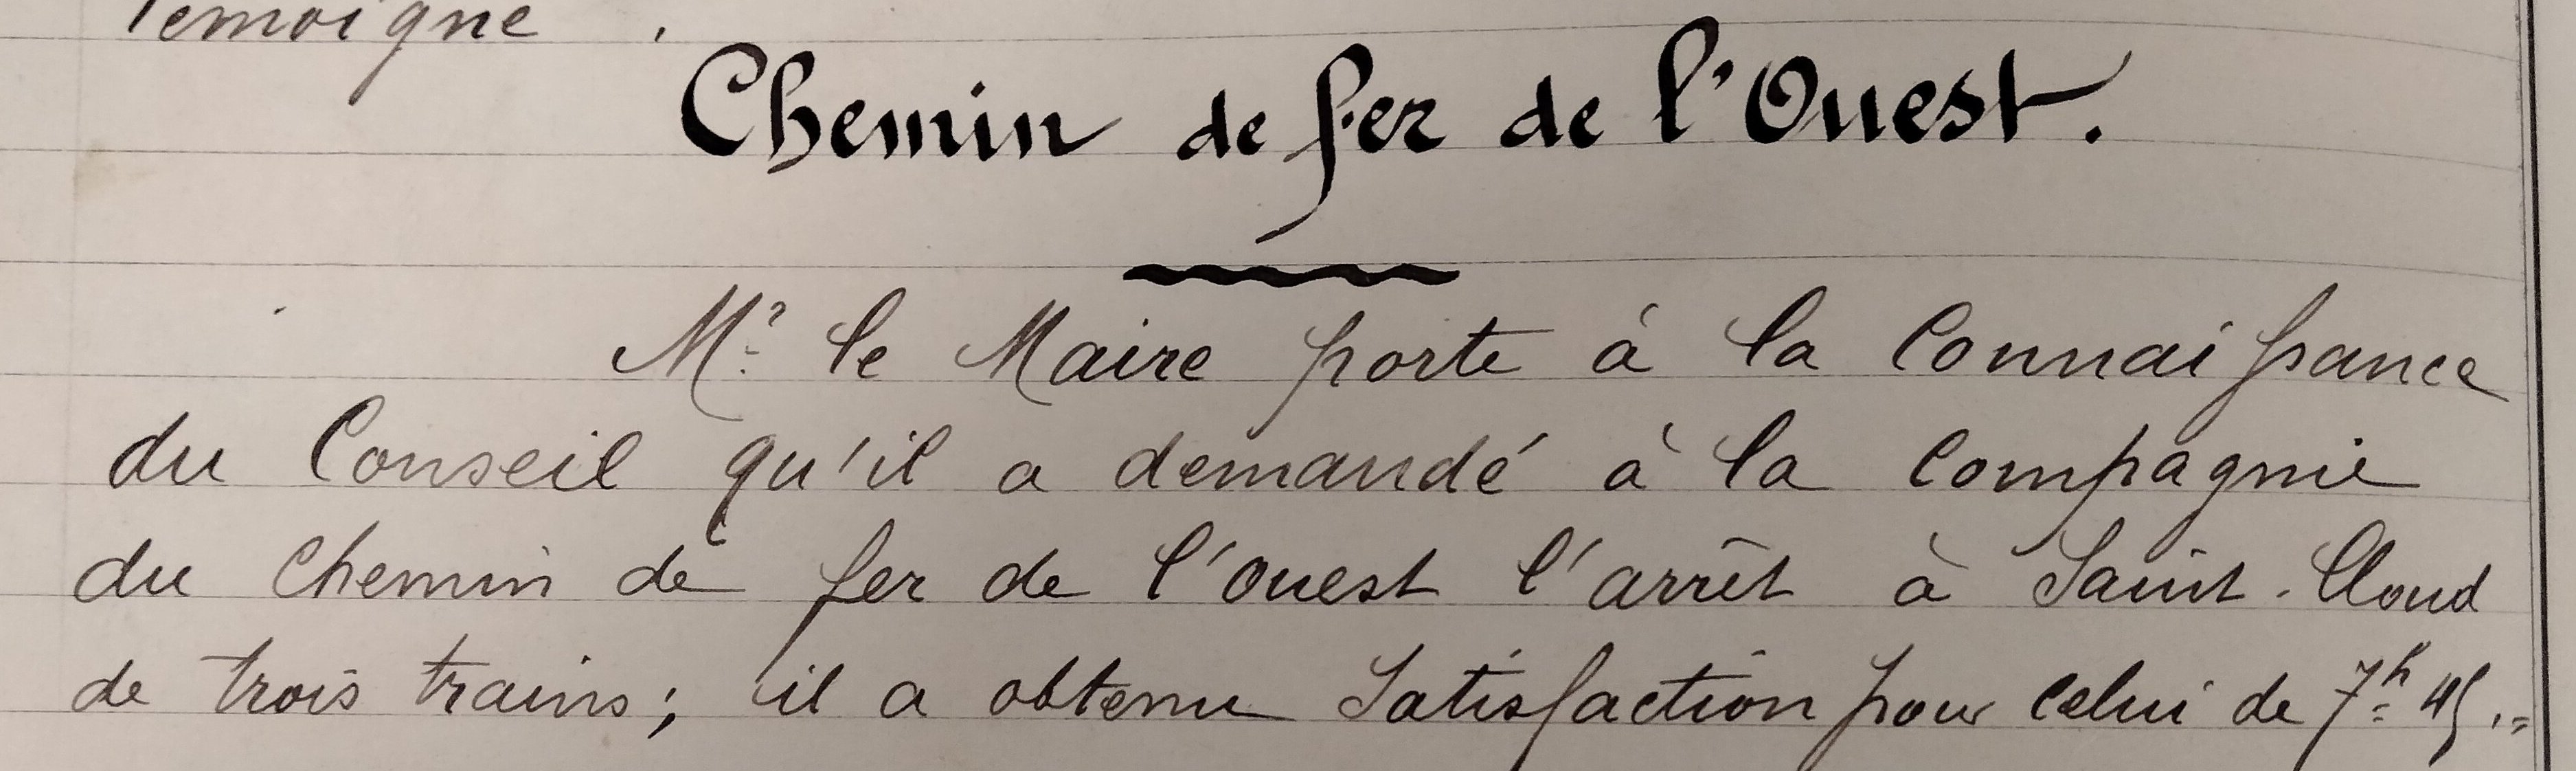 témoigne.
Chemin de fer de l'Ouest.
Mr le Maire porte à la Connaissance
du Conseil qu'il a demandé à la Compagnie
du Chemin de fer de l'Ouest l'arrêt à Saint-Cloud
de trois trains; il a obtenu Satisfaction pour celui de 7h 45.